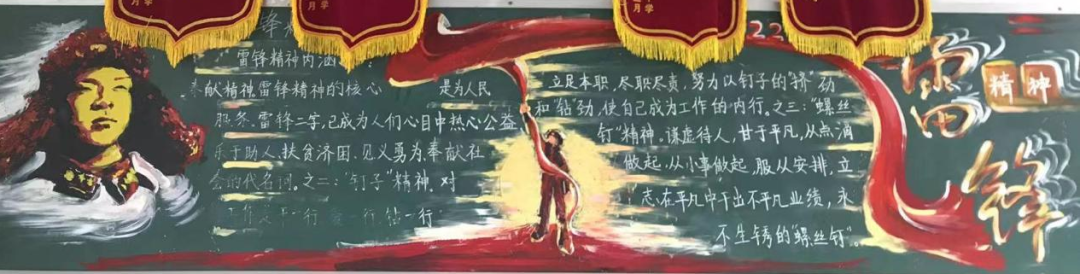 月 学
月 学
月 学
22
雷锋精神
锋
雷锋精神内涵
献精神雷锋精神的核心 是为人民
服务,雷锋二字,已成为人们心目中热心公益,
乐于助人、扶贫济困、见义勇为、奉献社
会的代名词。之二:“钉子”精神,对
一行 一行 一行
立足本职,尽职尽责,努力以钉子的“挤”劲
和“钻”劲,使自己成为工作的内行。之三:“螺丝
钉”精神,谦虚待人,甘于平凡,从点滴
做起,从小事做起,服从安排,立
志在平凡中干出不平凡业绩,永
不生锈的“螺丝钉”。